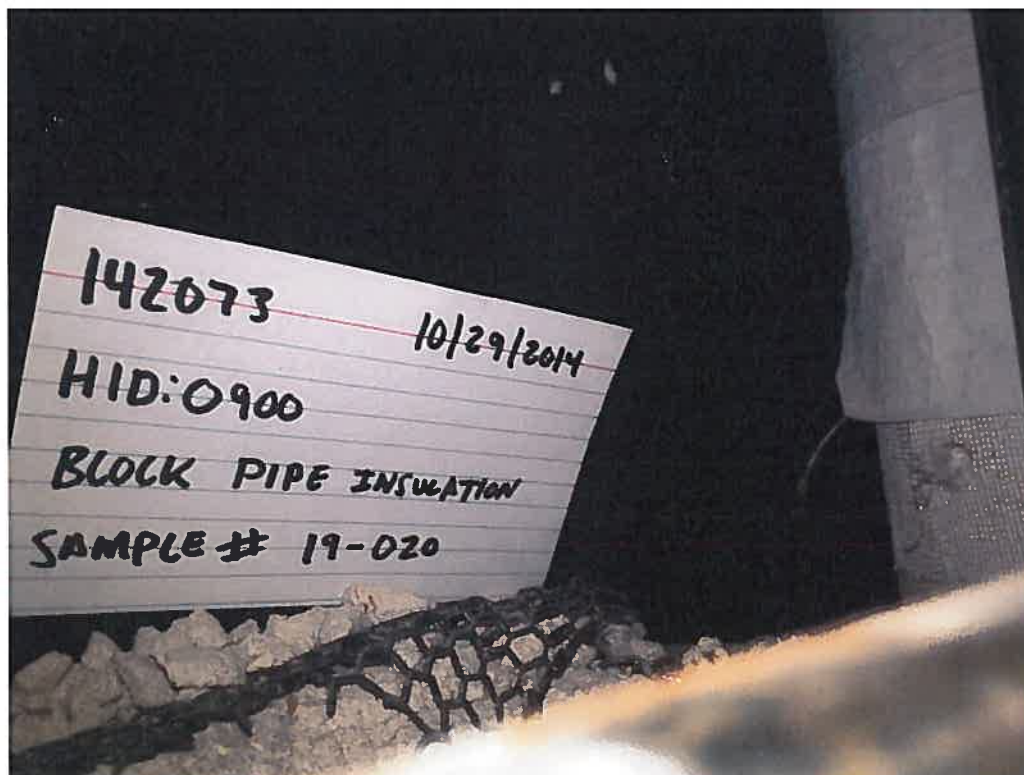 142073
10/29/2014
HID:0900
BLOCK PIPE INSULATION
SAMPLE # 19-020